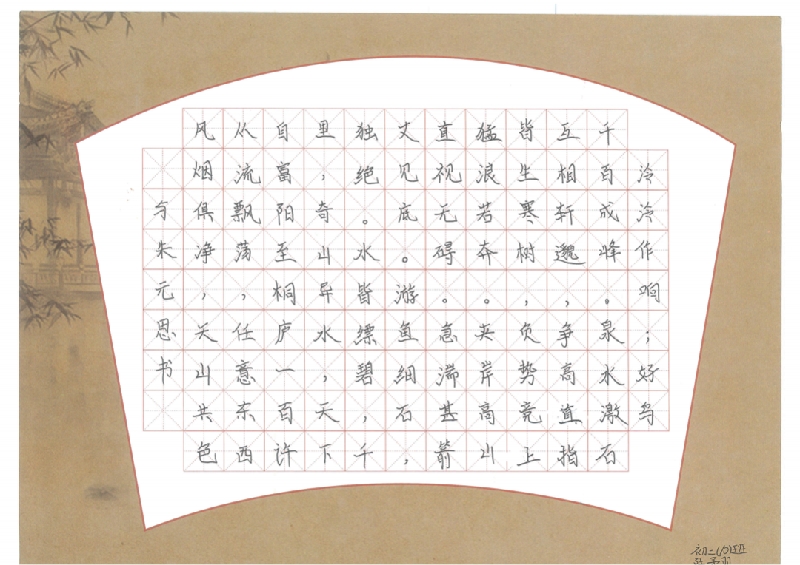 与朱元思书
风烟俱净，天山共色
从流飘荡，任意东西
自富阳至桐庐一百许
里，奇山异水，天下
独绝。水皆缥碧，千
丈见底。游鱼细石，
直视无碍。急湍甚箭
猛浪若奔。夹岸高山
皆生寒树，负势竞上
互相轩邈，争高直指
千百成峰。泉水激石
泠泠作响；好鸟
初二